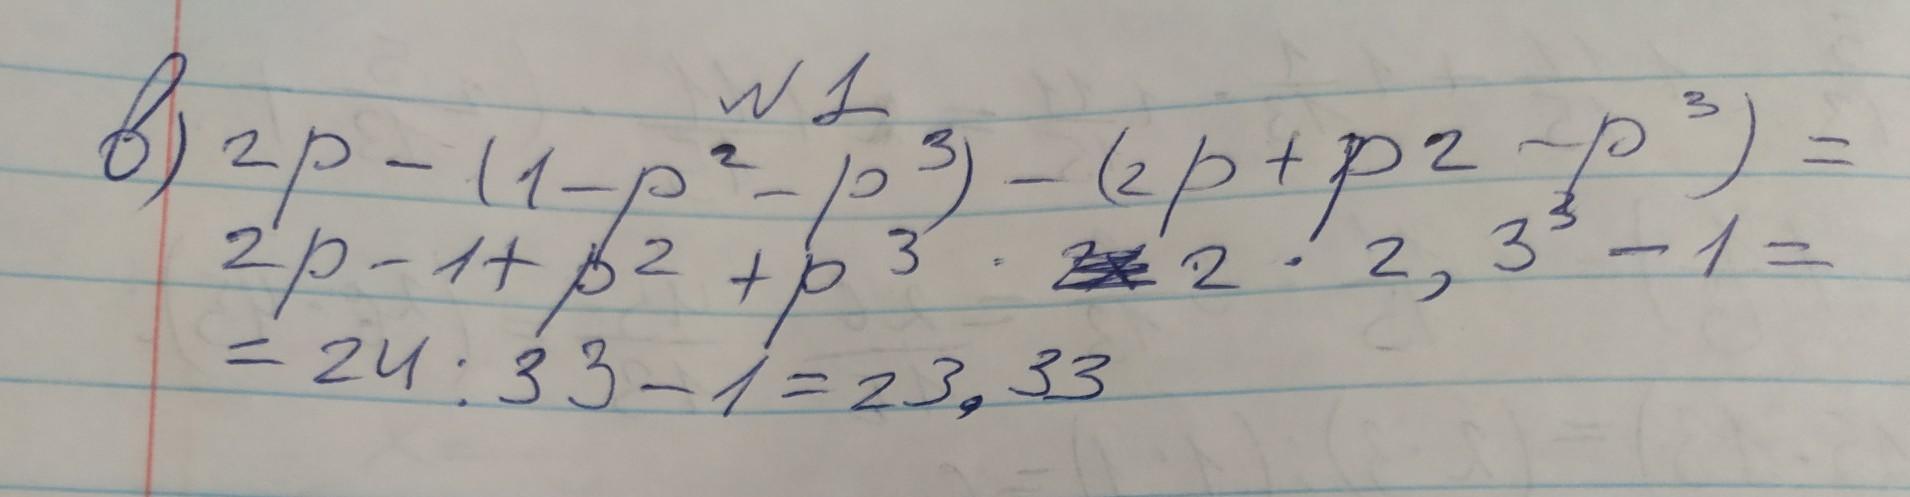 № 1
в) 2p - (1 - p² - p³) - (2p + p2 - p³) =
2p - 1 + p² + p³ · 2 · 2,3³ - 1 =
= 24 : 33 - 1 = 23,33